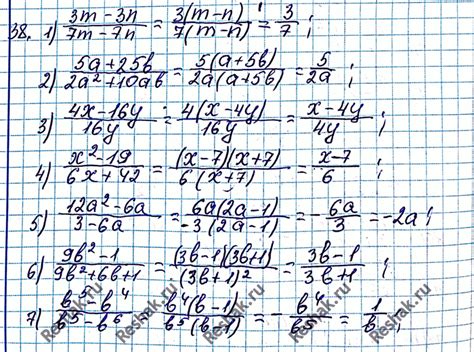 38. 1) (3m-3n)/(7m-7n) = 3(m-n)/7(m-n) = 3/7 ;
2) (5a+25b)/(2a²+10ab) = 5(a+5b)/2a(a+5b) = 5/2a ;
3) (4x-16y)/16y = 4(x-4y)/16y = (x-4y)/4y ;
4) (x²-19)/(6x+42) = (x-7)(x+7)/6(x+7) = (x-7)/6 ;
5) (12a²-6a)/(3-6a) = 6a(2a-1)/-3(2a-1) = -6a/3 = -2a ;
6) (9b²-1)/(9b²+6b+1) = (3b-1)(3b+1)/(3b+1)² = (3b-1)/(3b+1) ;
7) (b⁵-b⁴)/(b⁵-b⁶) = b⁴(b-1)/b⁵(b-1) = -b⁴/b⁵ = 1/b ;
Reshak.ru
Reshak.ru
Reshak.ru
Reshak.ru